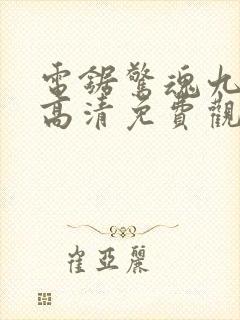 電鋸驚魂九
高清免費觀
崔亞麗